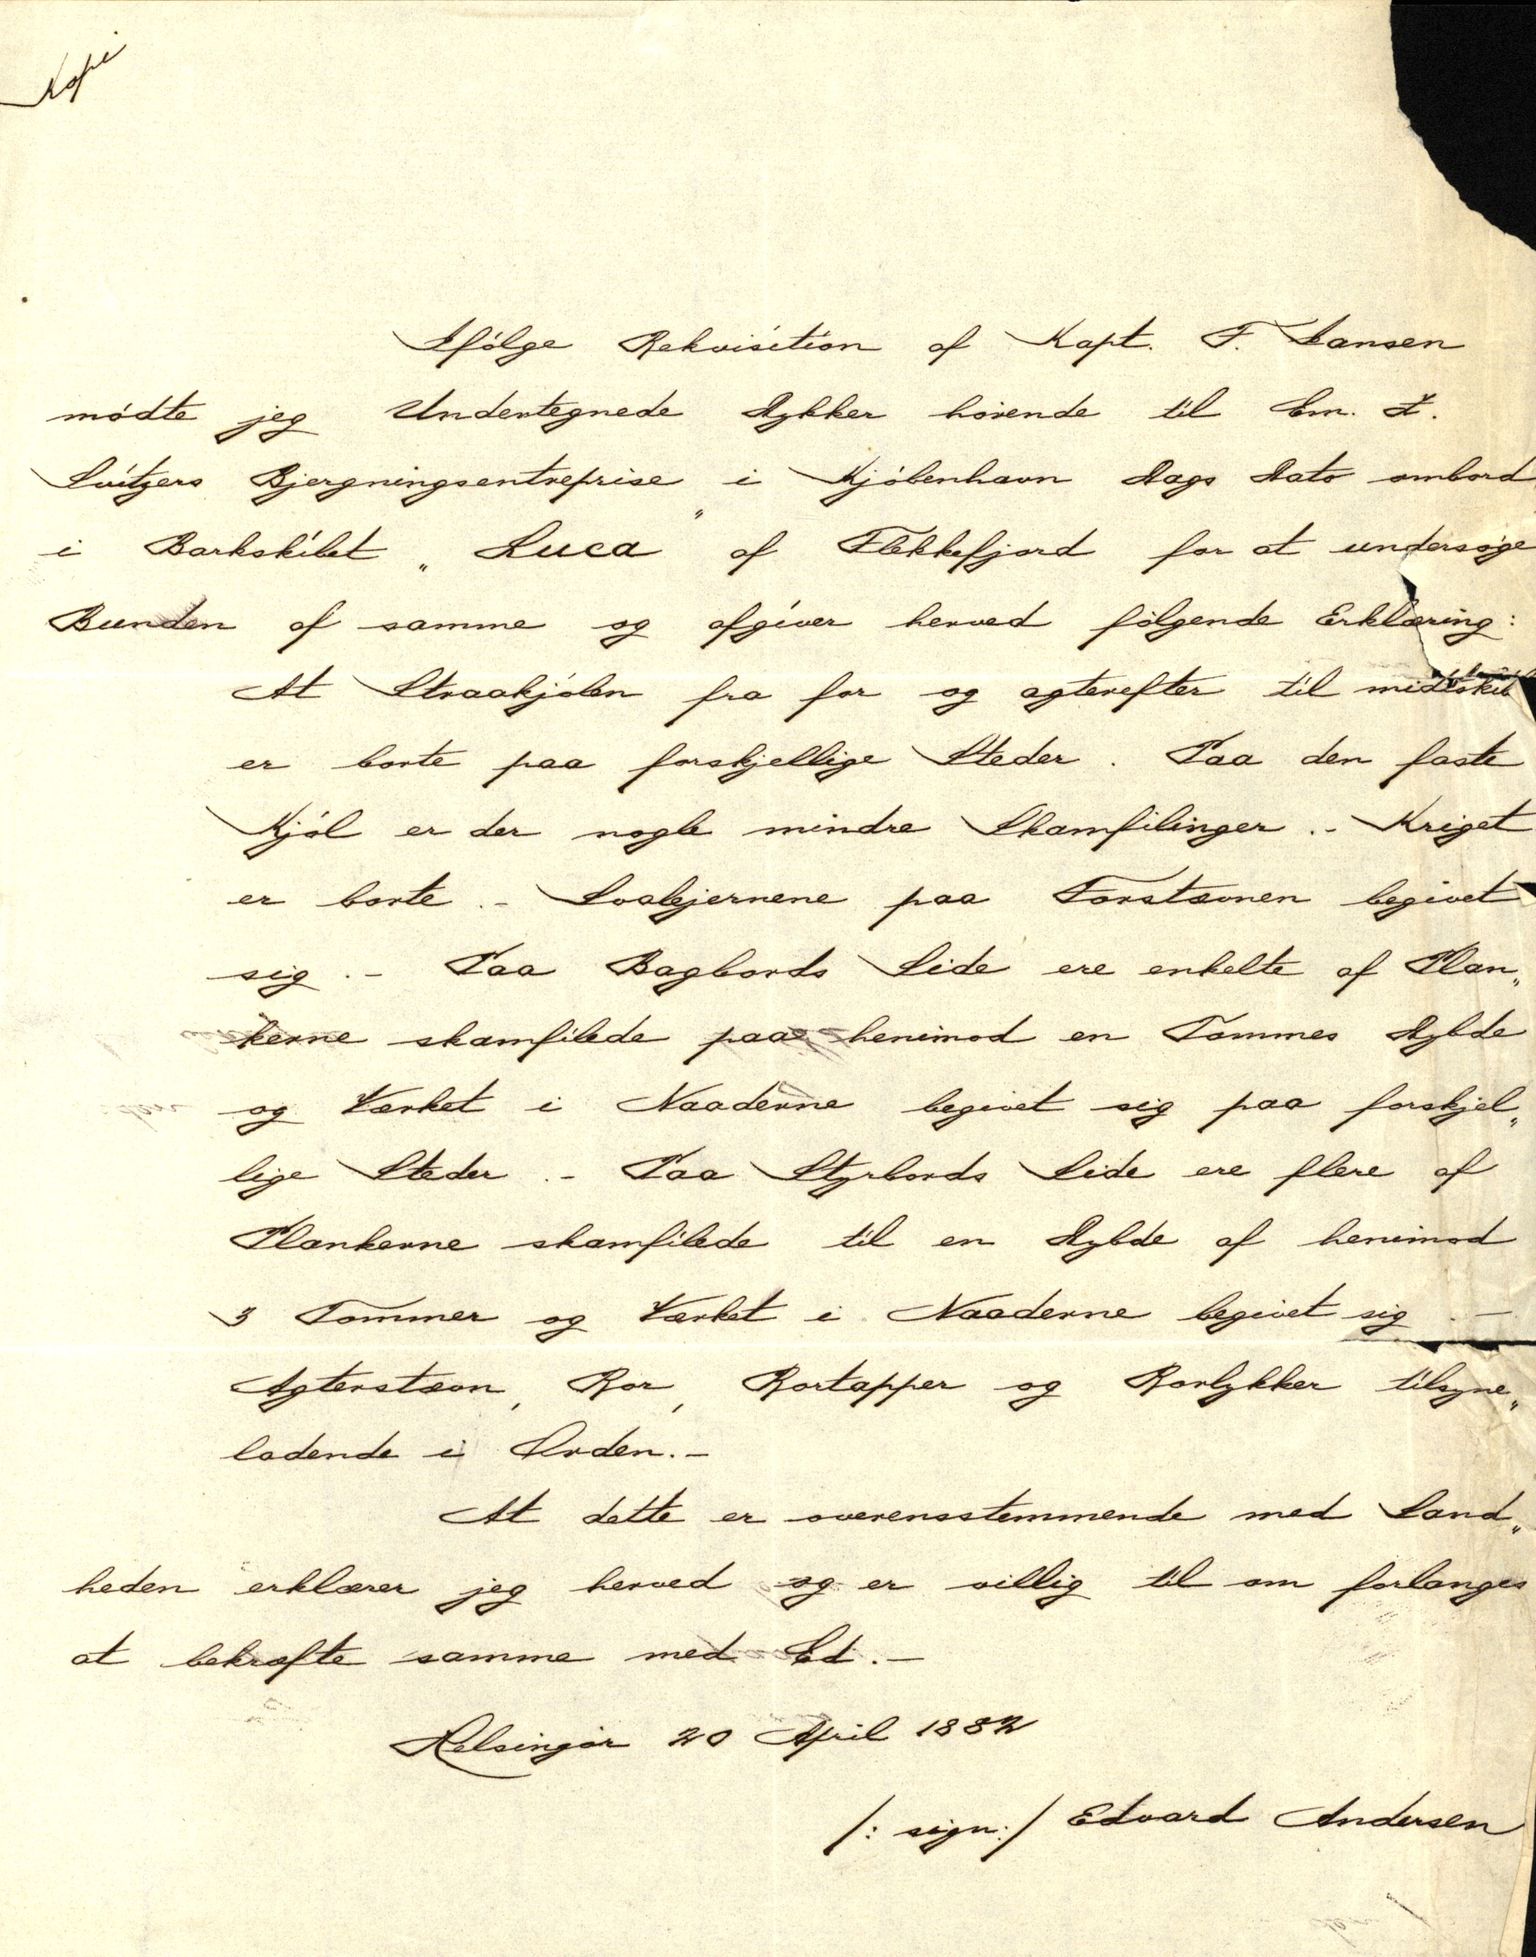 Kopi
Ifølge Rekvisition af Kapt. F. Jansen
mødte jeg Undertegnede Dykker hørende til Em. Z.
Svitzers Bjergningsentreprise" i Kjøbenhavn Dags Dato ombord
i Barkskibet „Luca af Flekkefjord for at undersøge
Bunden af samme og afgiver herved følgende Erklæring:
At Straakjølen fra for og agterefter til midtskib
er borte paa forskjellige Steder. Paa den faste
Kjøl er der nogle mindre Skamfilinger.- Kriget
er borte.- Svaljernene paa Forstævnen begivet
sig.- Paa Bagbords Side ere enkelte af Plan„
kerne skamfilede paa henimod en Tommes Dybde
og Værket i Naaderne begivet sig paa forskjel„
lige Steder.- Paa Styrbords Side ere flere af
Plankerne skamfilede til en Dybde af henimod
3 Tommer og Værket i Naaderne begivet sig.-
Agterstævn, Ror, Rortapper og Rorlykker tilsyne„
ladende i Orden.-
At dette er overensstemmende med Sand„
heden erklærer jeg herved og er villig til om forlanges
at bekræfte samme med Ed.-
Helsingør 20 April 1882
/: sign:/ Edvard Andersen